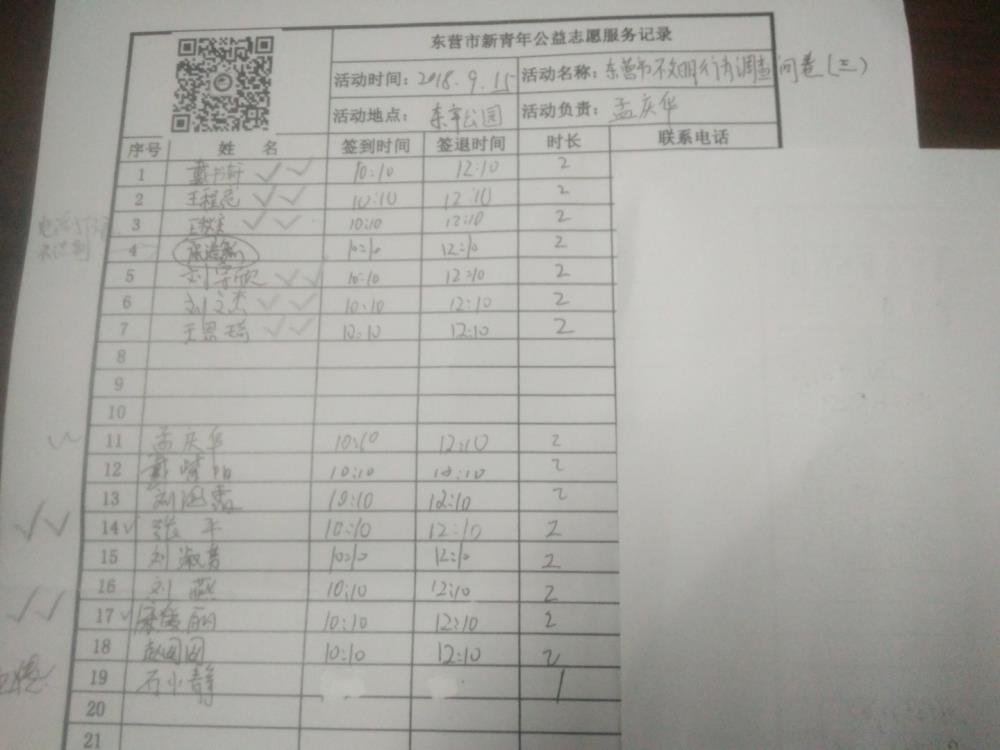 东营市新青年公益志愿服务记录
活动时间：2018.9.15 活动名称：东营市不文明行为调查问卷（三）
活动地点： 活动负责：孟庆华
序号 姓名 签到时间 签退时间 时长 联系电话
1 10:10 12:10 2
2 10:10 12:10 2
3 10:10 12:10 2
4 10:10 12:10 2
5 刘 欣 10:10 12:10 2
6 刘文杰 10:10 12:10 2
7 王思琦 10:10 12:10 2
8
9
10
11 孟庆华 10:10 12:10 2
12 10:10 12:10 2
13 10:10 12:10 2
14 张平 10:10 12:10 2
15 刘淑 10:10 12:10 2
16 刘燕 10:10 12:10 2
17 丽 10:10 12:10 2
18 10:10 12:10 2
19 石小静 1
20
21